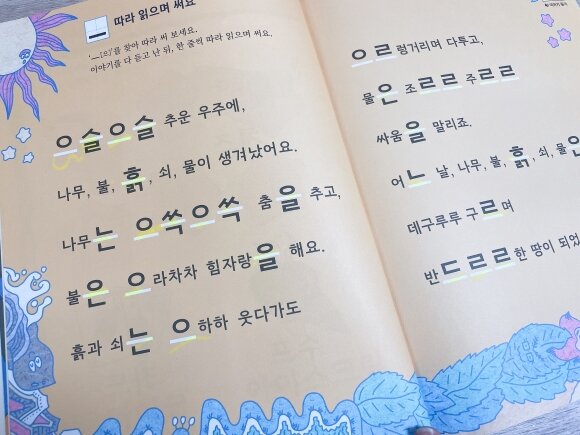 따라 읽으며 써요
'ㅡ[으]'를 찾아 따라 써 보세요.
이야기를 다 듣고 난 뒤, 한 줄씩 따라 읽으며 써요.
으슬으슬 추운 우주에,
나무, 불, 흙, 쇠, 물이 생겨났어요.
나무는 으쓱으쓱 춤을 추고,
불은 으라차차 힘자랑을 해요.
흙과 쇠는 으하하 웃다가도
으르렁거리며 다투고,
물은 조르르 주르르
싸움을 말리죠.
어느 날, 나무, 불, 흙, 쇠, 물은
데구루루 구르며
반드르르한 땅이 되었